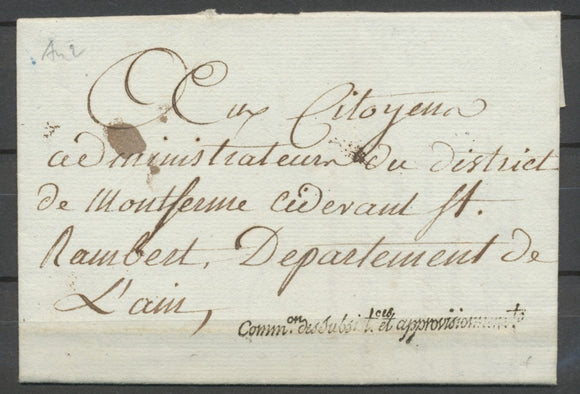 An 2
Aux Citoyens
administrateurs du district
de Montferme cidevant St.
Rambert, Departement de
L'ain,
Common. des Subsi.tces et approvisionnemts